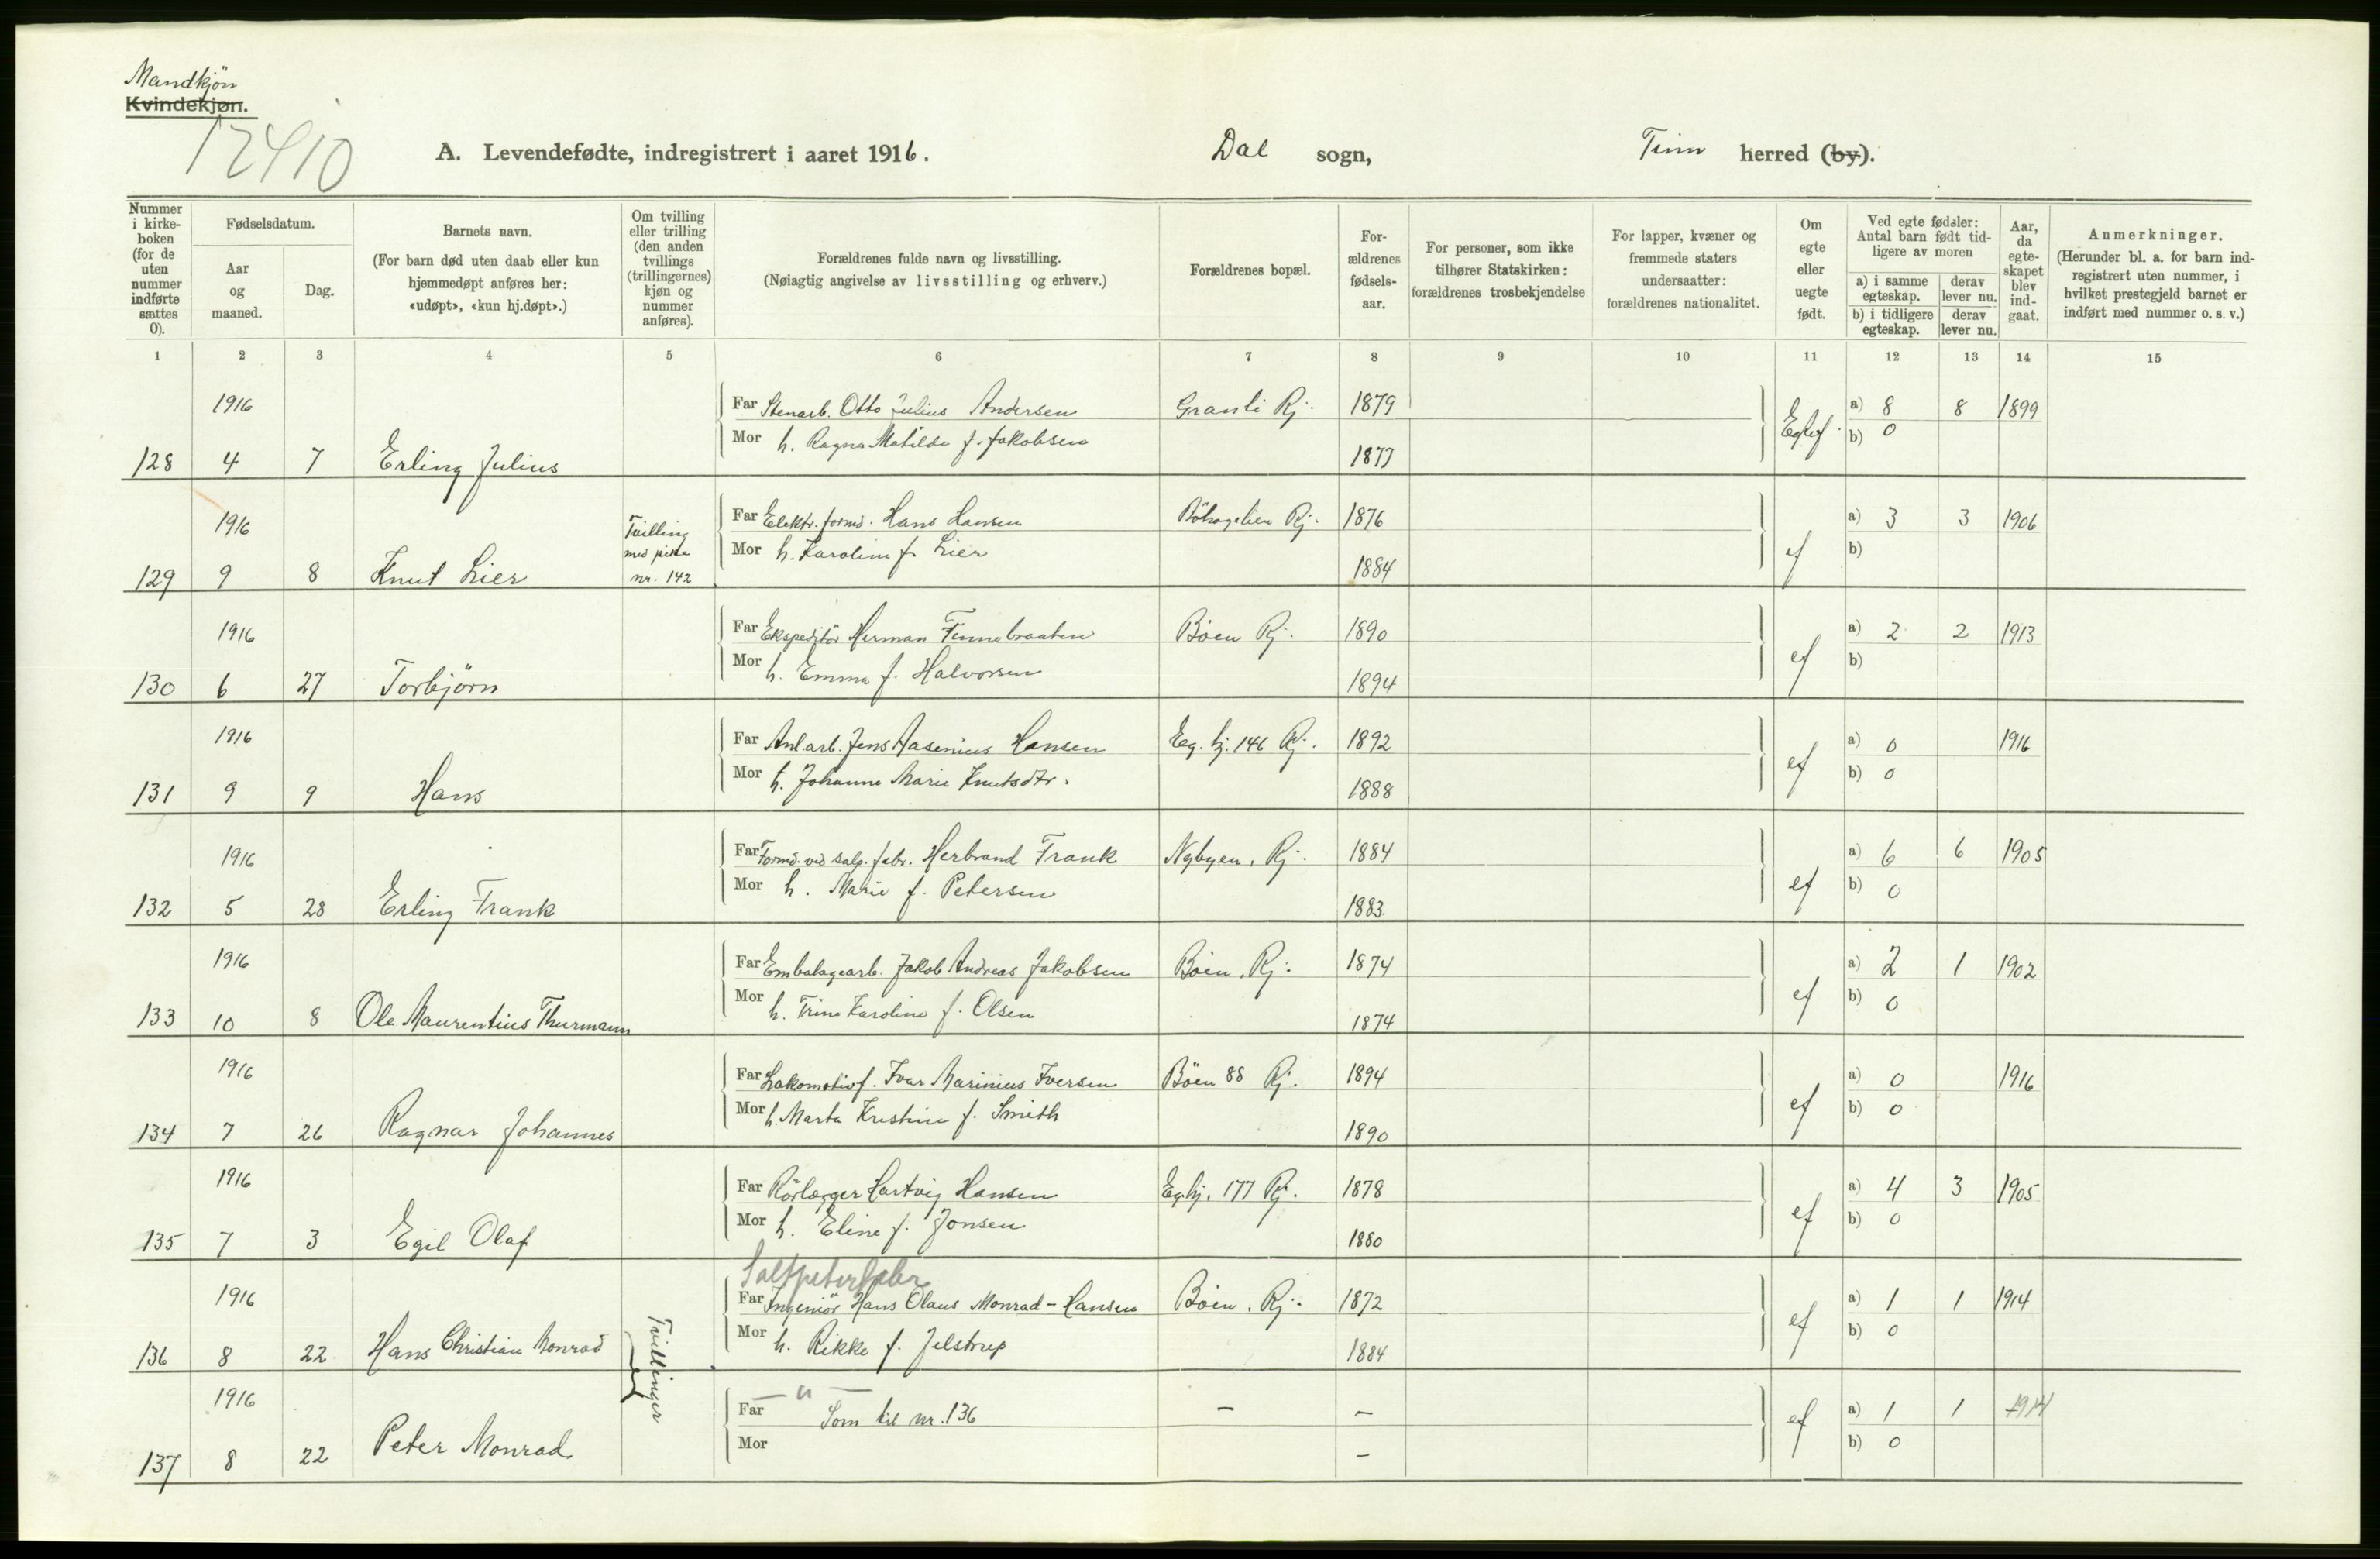 Mandkjön
Kvindekjøn.
12410
A. Levendefødte, indregistrert i aaret 1916. Dal sogn, Tinn herred (by).
Nummer i kirkeboken (for de uten nummer indførte sættes 0).
Fødselsdatum.
Aar og maaned.
Dag.
Barnets navn.
(For barn død uten daab eller kun hjemmedøpt anføres her: «udøpt», «kun hj.døpt».)
Om tvilling eller trilling (den anden tvillings (trillingernes) kjøn og nummer anføres).
Forældrenes fulde navn og livsstilling.
(Nøiagtig angivelse av livsstilling og erhverv.)
Forældrenes bopæl.
Forældrenes fødselsaar.
For personer, som ikke tilhører Statskirken: forældrenes trosbekjendelse
For lapper, kvæner og fremmede staters undersaatter: forældrenes nationalitet.
Om egte eller uegte født.
Ved egte fødsler: Antal barn født tidligere av moren
a) i samme egteskap. derav lever nu.
b) i tidligere egteskap. derav lever nu.
Aar, da egteskapet blev indgaat.
Anmerkninger.
(Herunder bl. a. for barn indregistrert uten nummer, i hvilket prestegjeld barnet er indført med nummer o. s. v.)
1 2 3 4 5 6 7 8 9 10 11 12 13 14 15
1916 Far Stenarb. Otto Julius Andersen Granli Rj. 1879 a) 8 8 1899
128 4 7 Erling Julius Mor h. Ragna Matilde f. Jakobsen 1877 b) 0
1916 Tvilling med nr. 142 Far Elektr. formd. Hans Hansen Rj. 1876 a) 3 3 1906
129 9 8 Knut Lier Mor h. Karoline f. Lier 1884 ef b)
1916 Far Ekspeditör Herman Finnebraaten Böen Rj. 1890 a) 2 2 1913
130 6 27 Torbjörn Mor h. Emma f. Halvorsen 1894 ef b)
1916 Far Anl.arb. Jens Aasenius Hansen Eg. hj. 146 Rj. 1892 a) 0 1916
131 9 9 Hans Mor h. Johanne Marie Knutsdtr. 1888 ef b) 0
1916 Far Formd. ved salp. fabr. Herbrand Frank Nybyen, Rj. 1884 a) 6 6 1905
132 5 28 Erling Frank Mor h. Marie f. Petersen 1883. ef b) 0
1916 Far Embalagearb. Jakob Andreas Jakobsen Böen, Rj. 1874 a) 2 1 1902
133 10 8 Ole Maurentius Thurmann Mor h. Trine Karoline f. Olsen 1874 ef b) 0
1916 Far Lokomotivf. Ivar Marinius Iversen Böen 88 Rj. 1894 a) 0 1916
134 7 26 Ragnar Johannes Mor h. Marta Kristine f. Smith 1890 ef b) 0
1916 Far Rörlægger Hartvig Hansen Eg.hj. 177 Rj. 1878 a) 4 3 1905
135 7 3 Egil Olaf Mor h. Eline f. Jonsen 1880 ef b) 0
Saltpeterfabr
1916 Far Ingeniör Hans Olaus Monrad-Hansen Böen, Rj. 1872 a) 1 1 1914
136 8 22 Hans Christian Monrad Tvillinger Mor h. Rikke f. Jelstrup 1884 ef b) 0
1916 Far — " — Som til nr. 136 – – ef a) 1 1 1914
137 8 22 Peter Monrad Mor – b) 0